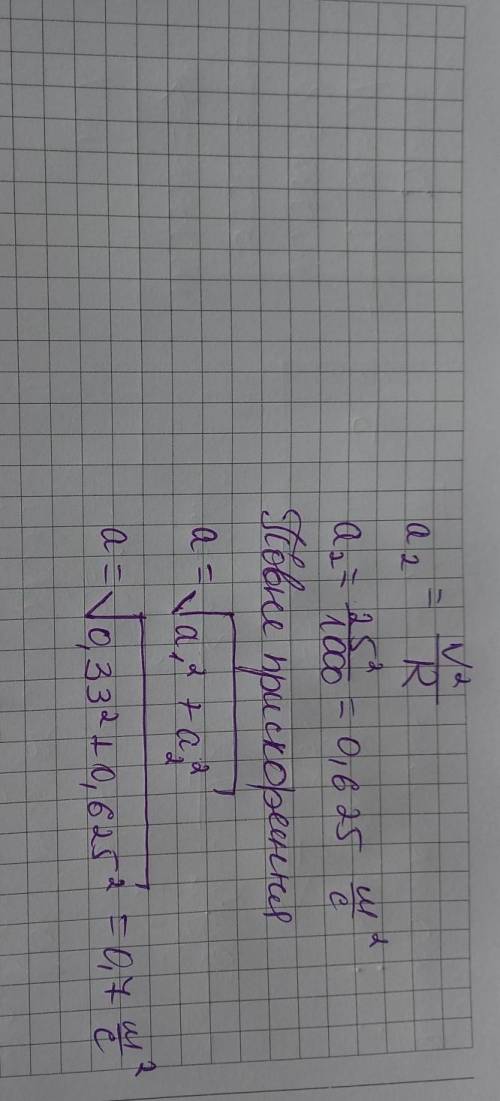 a₂ = V²/R
a₂ = 25²/1000 = 0,625 м/с²
Повне прискорення
a = √(a₁² + a₂²)
a = √(0,33² + 0,625²) = 0,7 м/с²